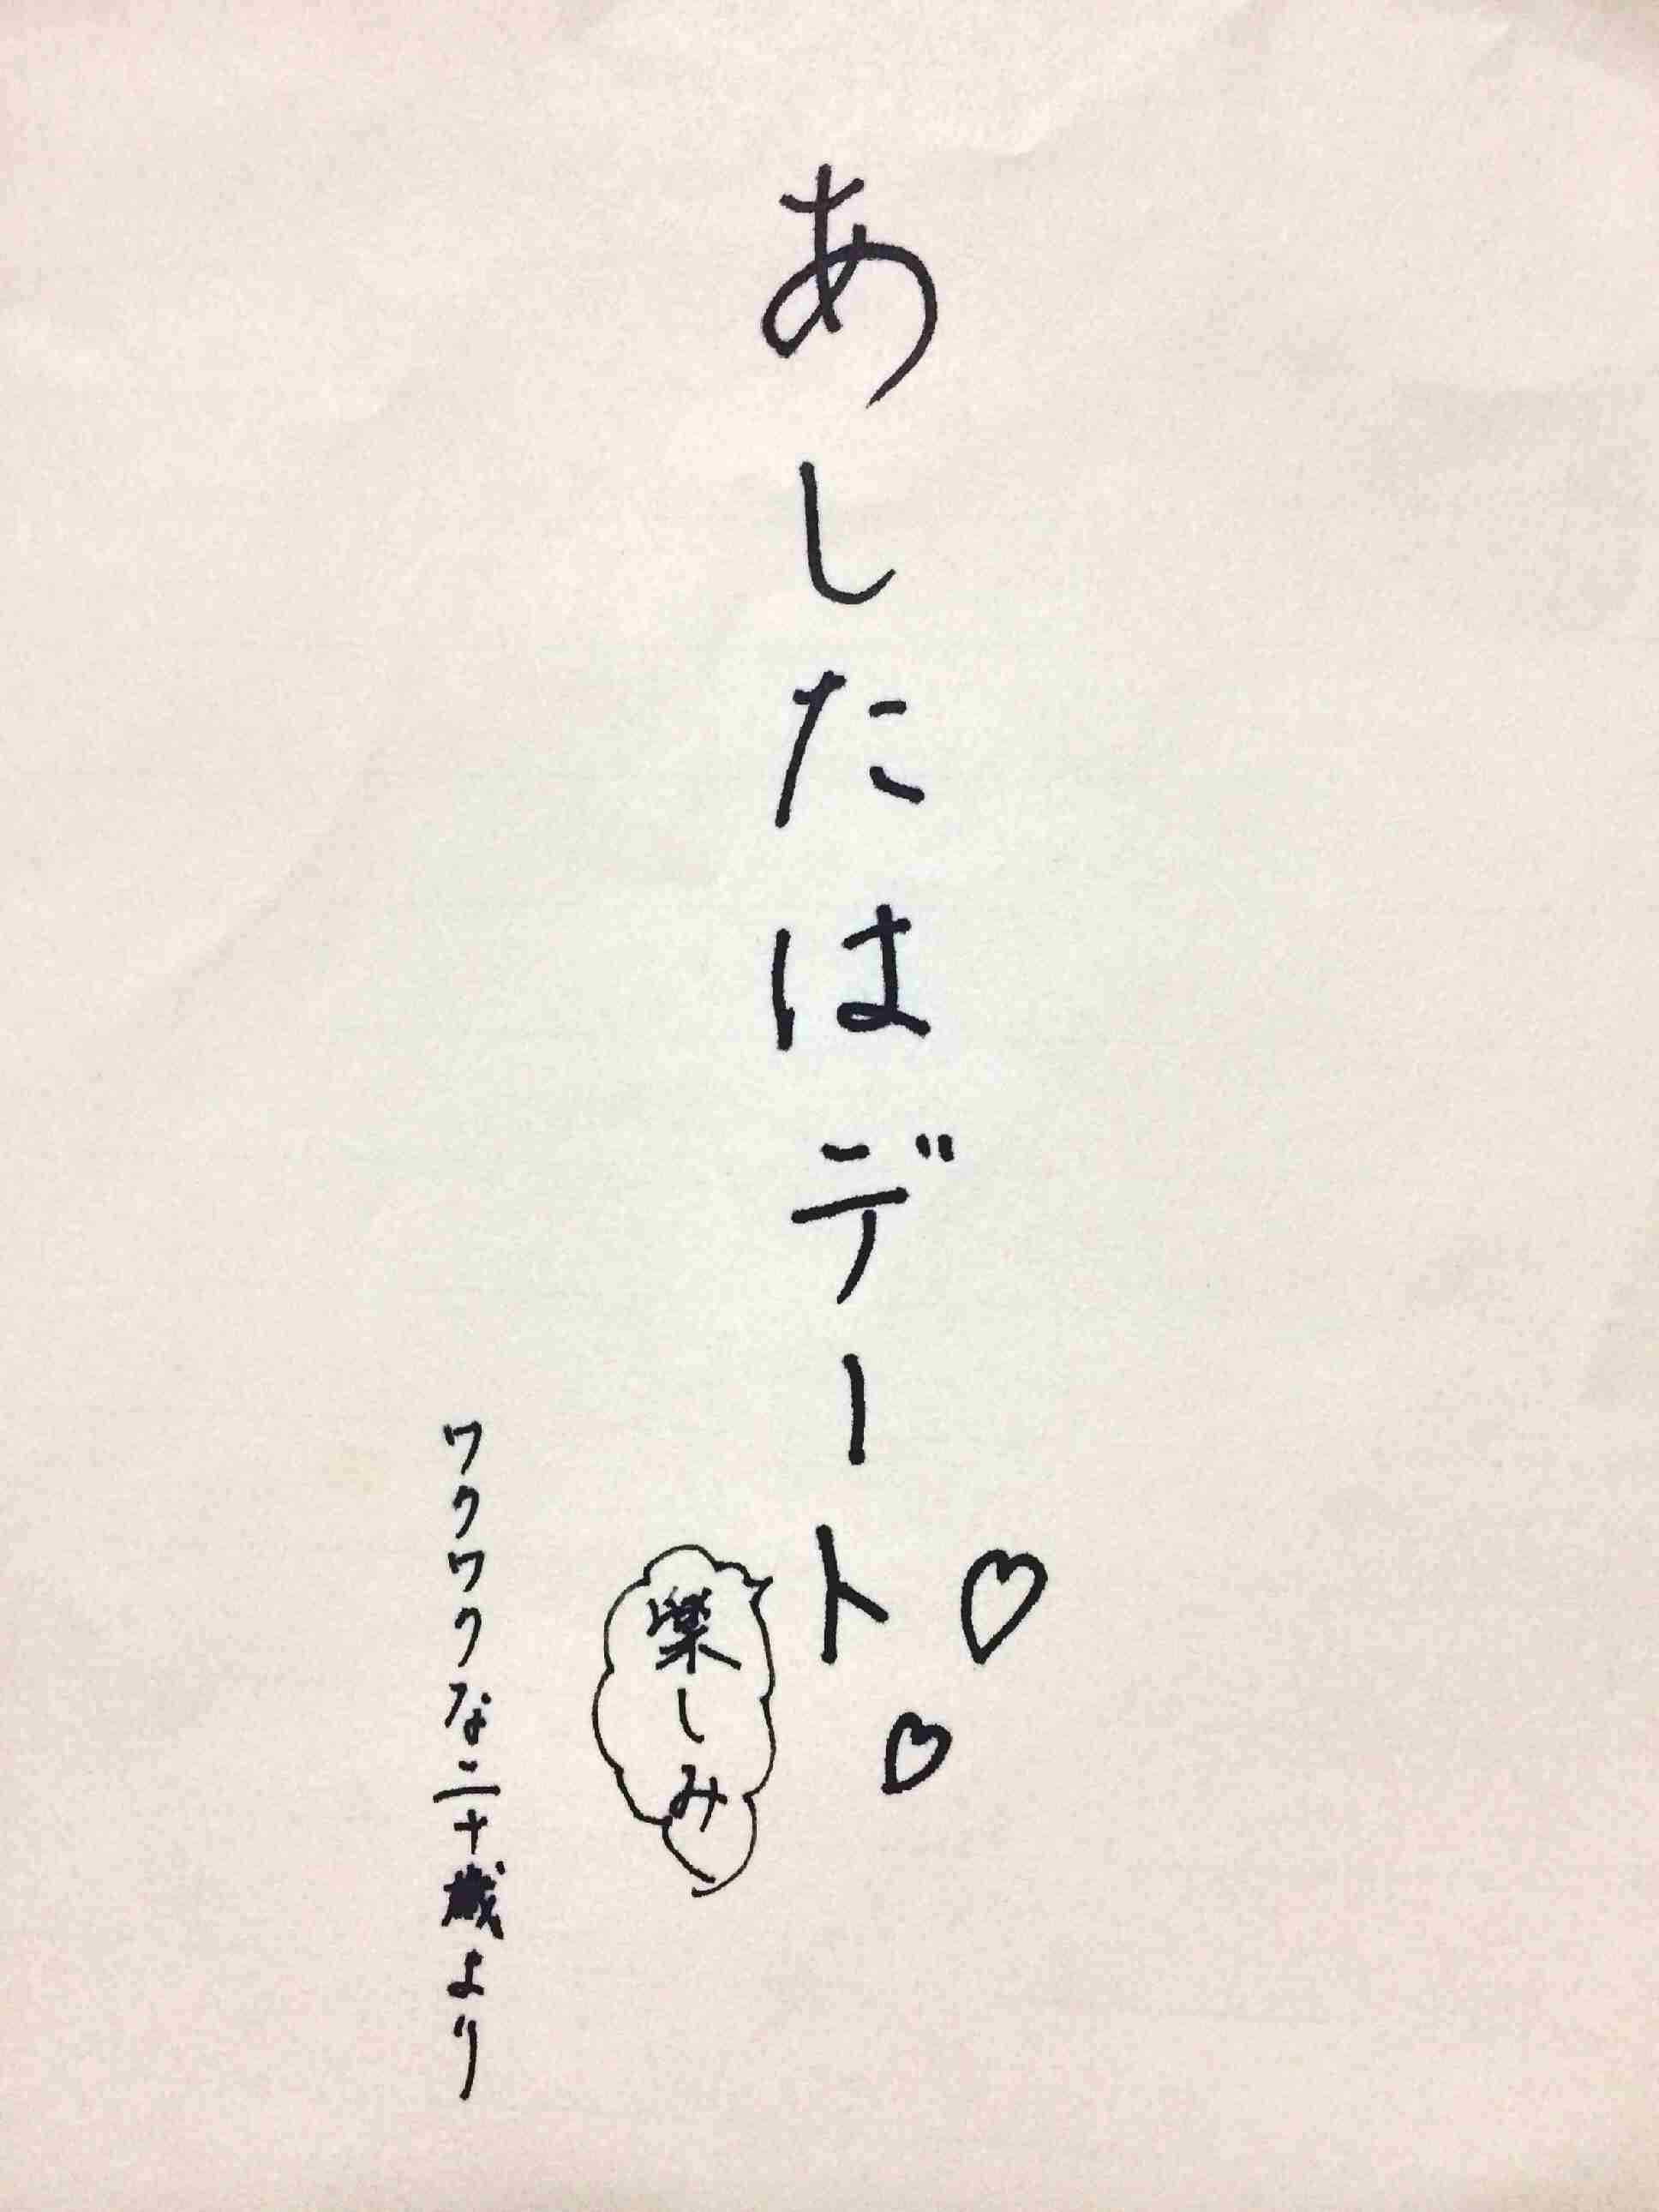 あしたはデート♡♡
楽しみ
ワクワクな二十歳より